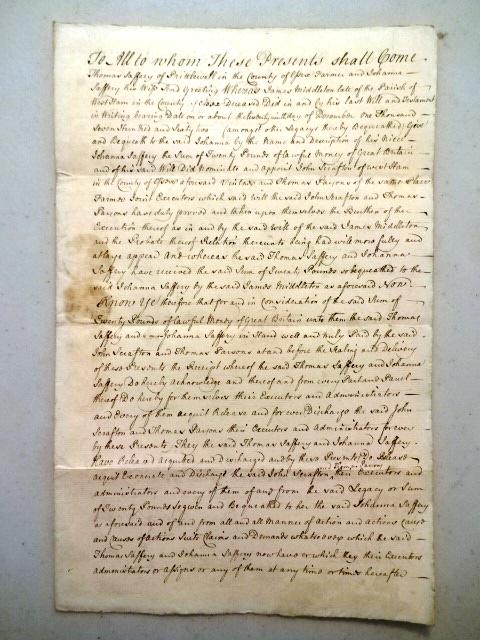 To All to whom These Presents shall Come
Thomas Saffery of Prittlewell in the County of Essex Farmer and Johanna
Saffery his Wife Send Greeting Whereas James Middleton late of the Parish of
West Ham in the County of Essex Deceased Did in and by his last Will and Testament
in Writing bearing Date on or about the twentyninth day of December One Thousand
Seven Hundred and Sixty two (amongst other Legacys thereby Bequeathed) Give
and Bequeath to the said Johanna by the Name and Description of his Niece
Johanna Saffery the Sum of Twenty Pounds of lawful Money of Great Britain
and of his said Will Did Nominate and appoint John Scrafton of West Ham
in the County of Essex aforesaid and Thomas Parsons of the same Place
Farmer Joint Executors which said Will the said John Scrafton and Thomas
Parsons have duly proved and taken upon themselves the Burthen of the
Execution thereof as in and by the said Will of the said James Middleton
and the Probate thereof Relation thereunto being had will more fully and
at large appear And whereas the said Thomas Saffery and Johanna
Saffery have received the said Sum of Twenty Pounds so bequeathed to the
said Johanna Saffery by the said James Middleton as aforesaid Now
Know Ye therefore that for and in Consideration of the said Sum of
Twenty Pounds of lawful Money of Great Britain unto them the said Thomas
Saffery and Johanna Saffery in Hand well and truly Paid by the said
John Scrafton and Thomas Parsons at and before the Sealing and Delivery
of these Presents the Receipt whereof the said Thomas Saffery and Johanna
Saffery Do hereby acknowledge and thereof and from every Part and Parcel
thereof Do hereby for themselves their Executors and Administrators
and Every of them acquit Release and for ever Discharge the said John
Scrafton and Thomas Parsons their Executors and Administrators for ever
by these Presents They the said Thomas Saffery and Johanna Saffery
Have Released acquitted and Discharged and by these Presents Do Release
acquit Exonerate and Discharge the said John Scrafton Thomas Parsons their Executors and
administrators and every of them of and from the said Legacy or Sum
of Twenty Pounds so given and Bequeathed to her the said Johanna Saffery
as aforesaid and of and from all and all Manner of Action and Actions Cause
and Causes of Actions Suits Claims and Demands whatsoever which the said
Thomas Saffery and Johanna Saffery now have or which they their Executors
administrators or assigns or any of them at any time or times hereafter